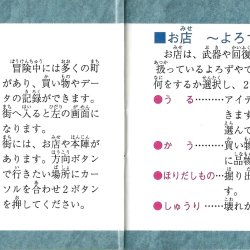 冒険中には多くの町
があり、買い物やデー
タの記録ができます。
街へ入ると左の画面に
なります。
街には、お店や本陣が
あります。方向ボタン
で行きたい場所にカー
ソルを合わせ②ボタン
を押してください。
■お店 ～よろず
お店は、武器や回
扱っているよろずやで
何をするか選択し、2
●うる………アイテ
きます
選んで
●かう………買い物
に品物
●ほりだしもの…掘り
示され
●しゅうり……壊れか